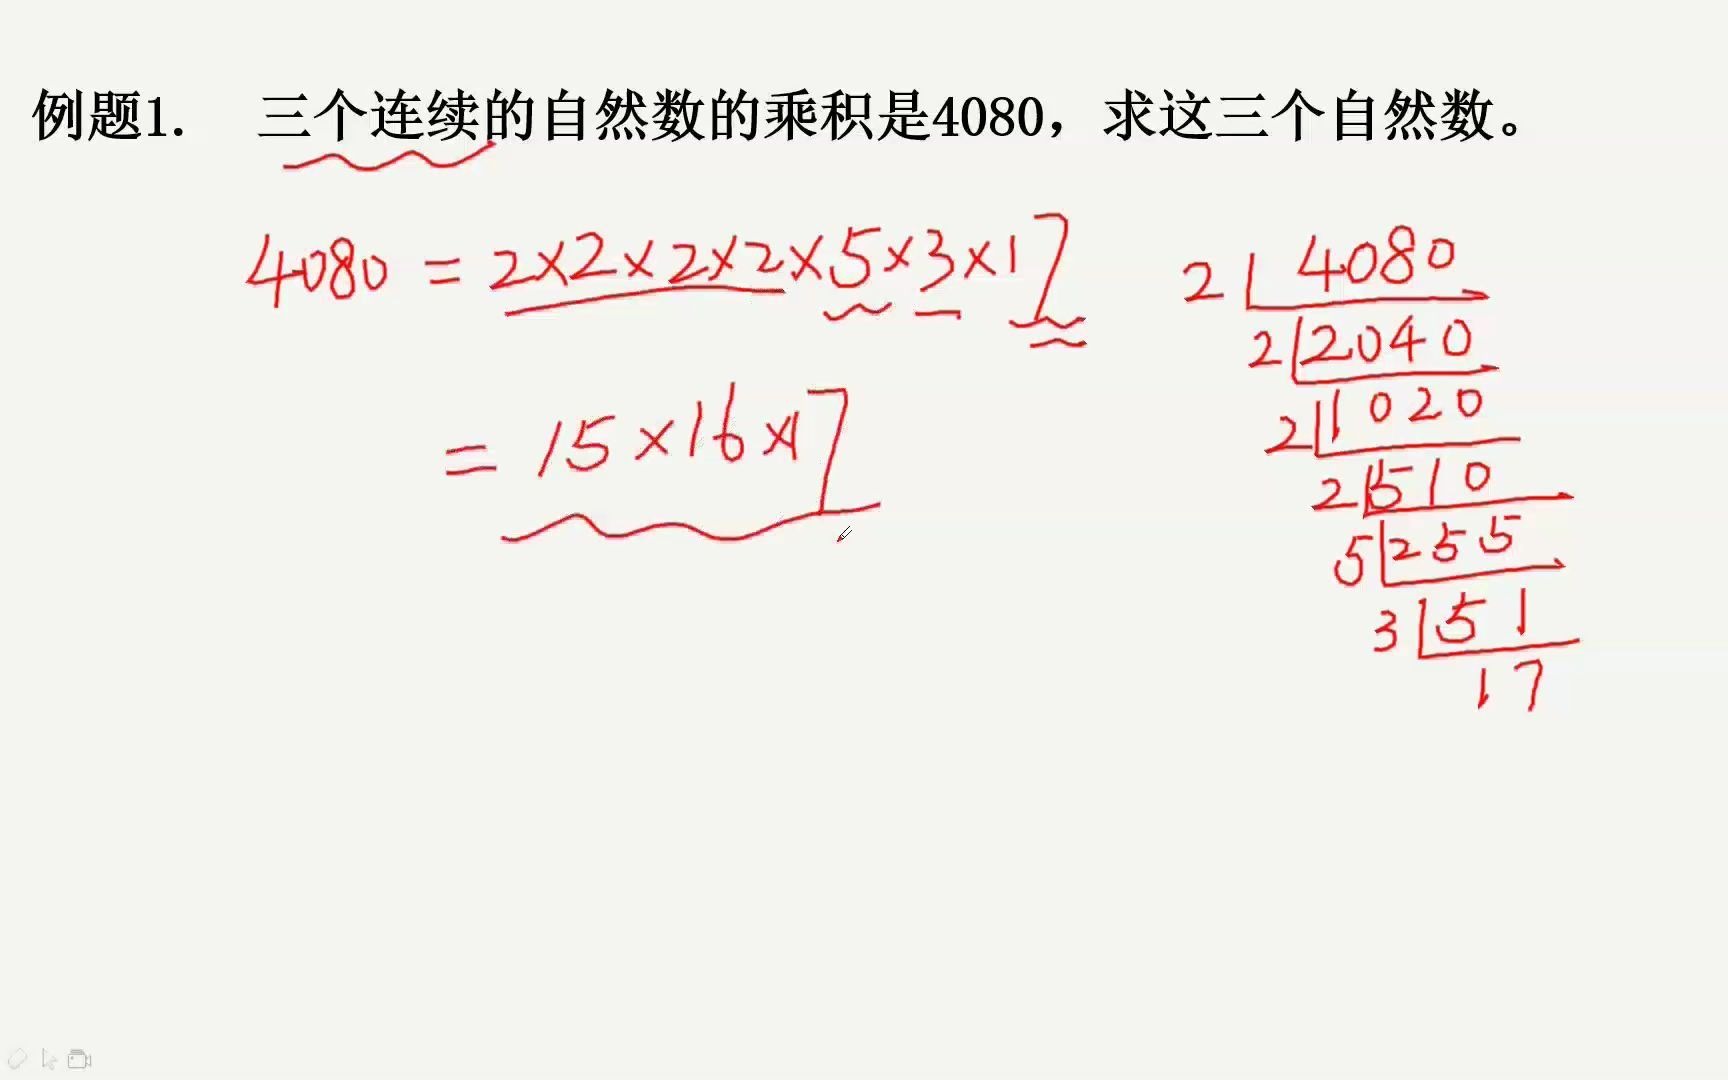 例题1. 三个连续的自然数的乘积是4080，求这三个自然数。
4080 = 2×2×2×2×5×3×17
= 15×16×17
2 4080
2 2040
2 1020
2 510
5 255
3 51
17